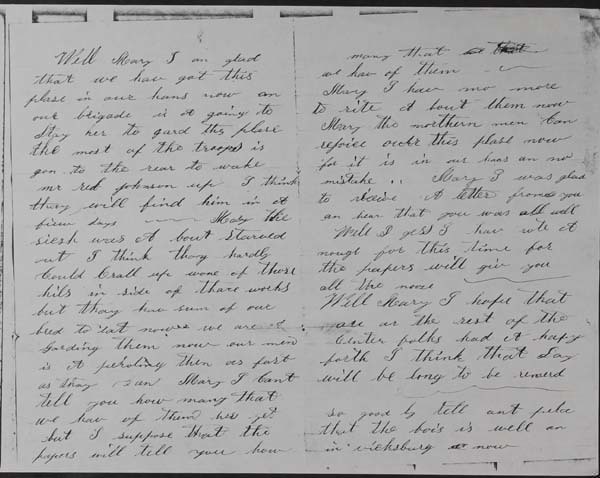 Well Mary I am glad
that we hav got this
plase in our hans now an
our brigade is a going to
Stay her to gard this plase
the most of the troops is
gon to the rear to wake
mr red Johnson up I think
thay will find him in a
fieu days Mary the
siesh was a bout Starved
out I think thay hardly
Could Crall up wone of those
hils in side of thare works
but thay hav sum of our
bred to eat now we are a
Garding them now our men
is a peroling them as fast
as thay can Mary I Cant
tell you how many that
we hav of them her yet
but I suppose that the
papers will tell you how
many that
we hav of them
Mary I hav no more
to rite a bout them now
Mary the northern men Can
rejoice over this plase now
for it is in our hans an no
mistake Mary I was glad
to receive A letter from you
an hear that you was all well
Well I gess I hav rite a
nough for this time for
the papers will giv you
all the nooze
Well Mary I hope that
you an the rest of the
Center folks had a hapy
forth I think that Day
will be long to be remembered
so good by tell ant
that the bois is well an
in vicksburg now